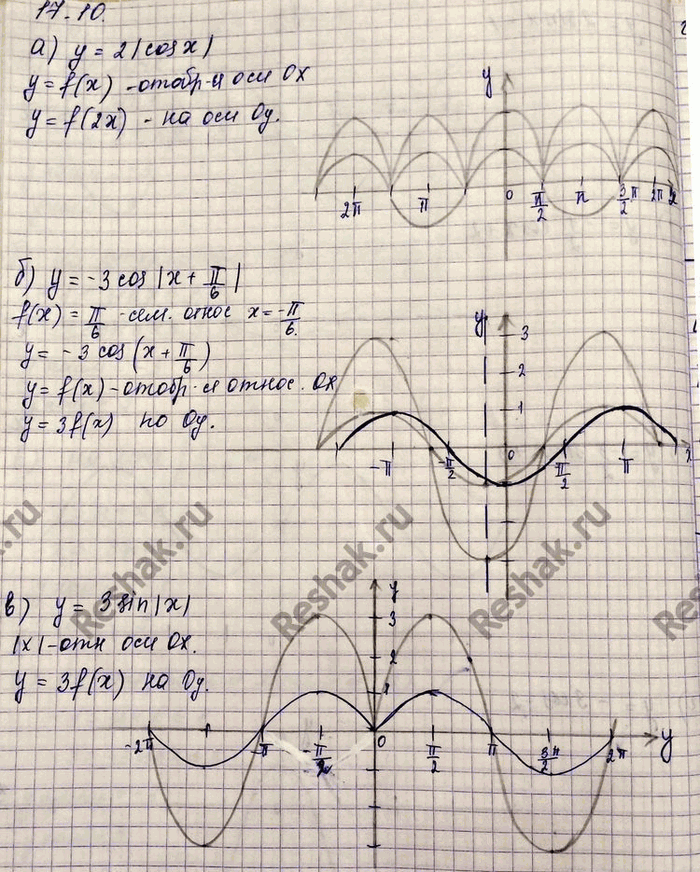 17.10.
а) y = 2|cos x|
y = f(x) - отобр-я оси OX
y = f(2x) - на оси Oy.
y
2π π 0 π/2 π 3/2 π 2π x
б) y = -3 cos |x + π/6|
f(x) = π/6 - сим. относ x = -π/6.
y = -3 cos (x + π/6)
y = f(x) - отобр-ся относ. OX
y = 3f(x) по Oy.
y
3
2
1
-π -π/2 0 π/2 π x
в) y = 3 sin |x|
|x| - отн оси OX.
y = 3f(x) на Oy.
y
3
2
1
-2π -π -π/2 0 π/2 π 3π/2 2π y
Reshak.ru
Reshak.ru
Reshak.ru